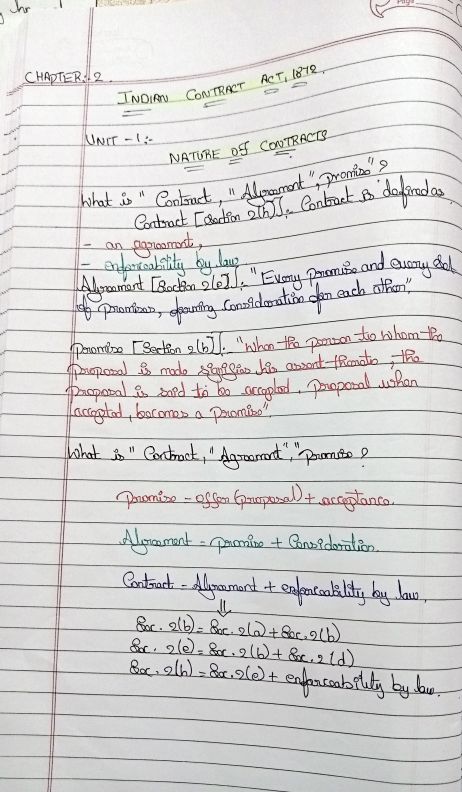 hr
Page
CHAPTER:-2.
INDIAN CONTRACT ACT, 1872.
UNIT-1:-
NATURE OF CONTRACTS
What is "Contract, "Agreement", promise"?
Contract [Section 2(h)]:- Contract is defined as
- an agreement,
- enforceability by law
Agreement [Section 2(e)]:- "Every promise and every set
of promises, forming consideration for each other".
promise [Section 2(b)]:- "When the person to whom the
proposal is made signifies his assent thereto, the
proposal is said to be accepted. proposal when
accepted, becomes a promise"
What is "Contract, "Agreement", "promise?
promise - offer (proposal) + acceptance.
Agreement = promise + Consideration.
Contract = Agreement + enforceability by law.
⇓
Sec. 2(b) = Sec. 2(a) + Sec. 2(b)
Sec. 2(e) = Sec. 2(b) + Sec. 2(d)
Sec. 2(h) = Sec. 2(e) + enforceability by law.